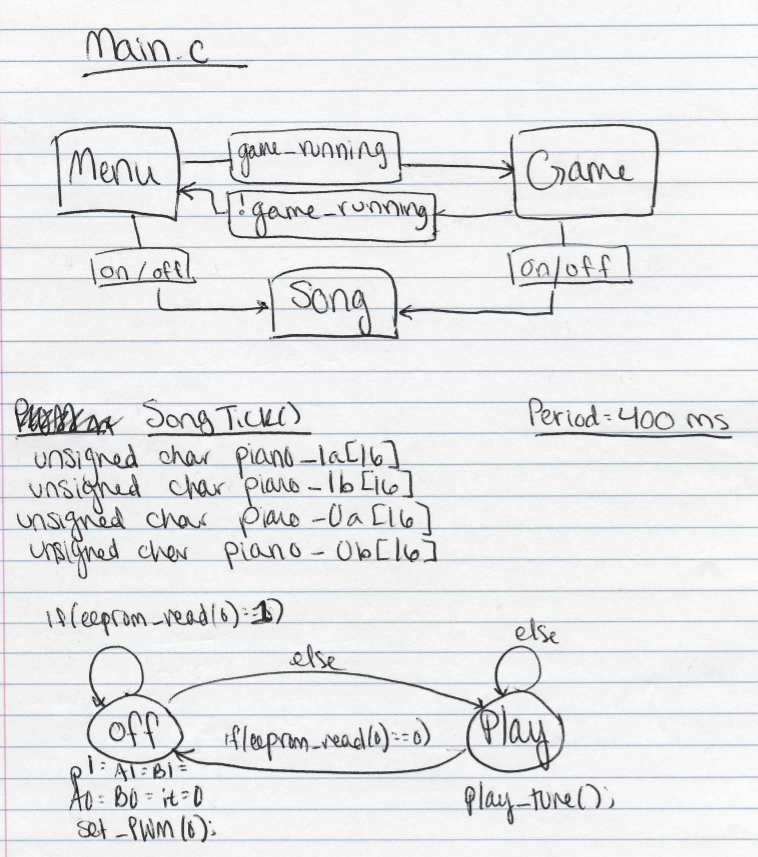 Main.c
Menu
game_running
Game
!game_running
on/off
on/off
Song
SongTick()
Period=400 ms
unsigned char piano_1a[16]
unsigned char piano_1b[16]
unsigned char piano_0a[16]
unsigned char piano_0b[16]
if(eeprom_read(0)==1)
else
else
off
if(eeprom_read(0)==0)
Play
p1=A1=B1=
A0=B0=it=0
play_tune();
set_PWM(0);